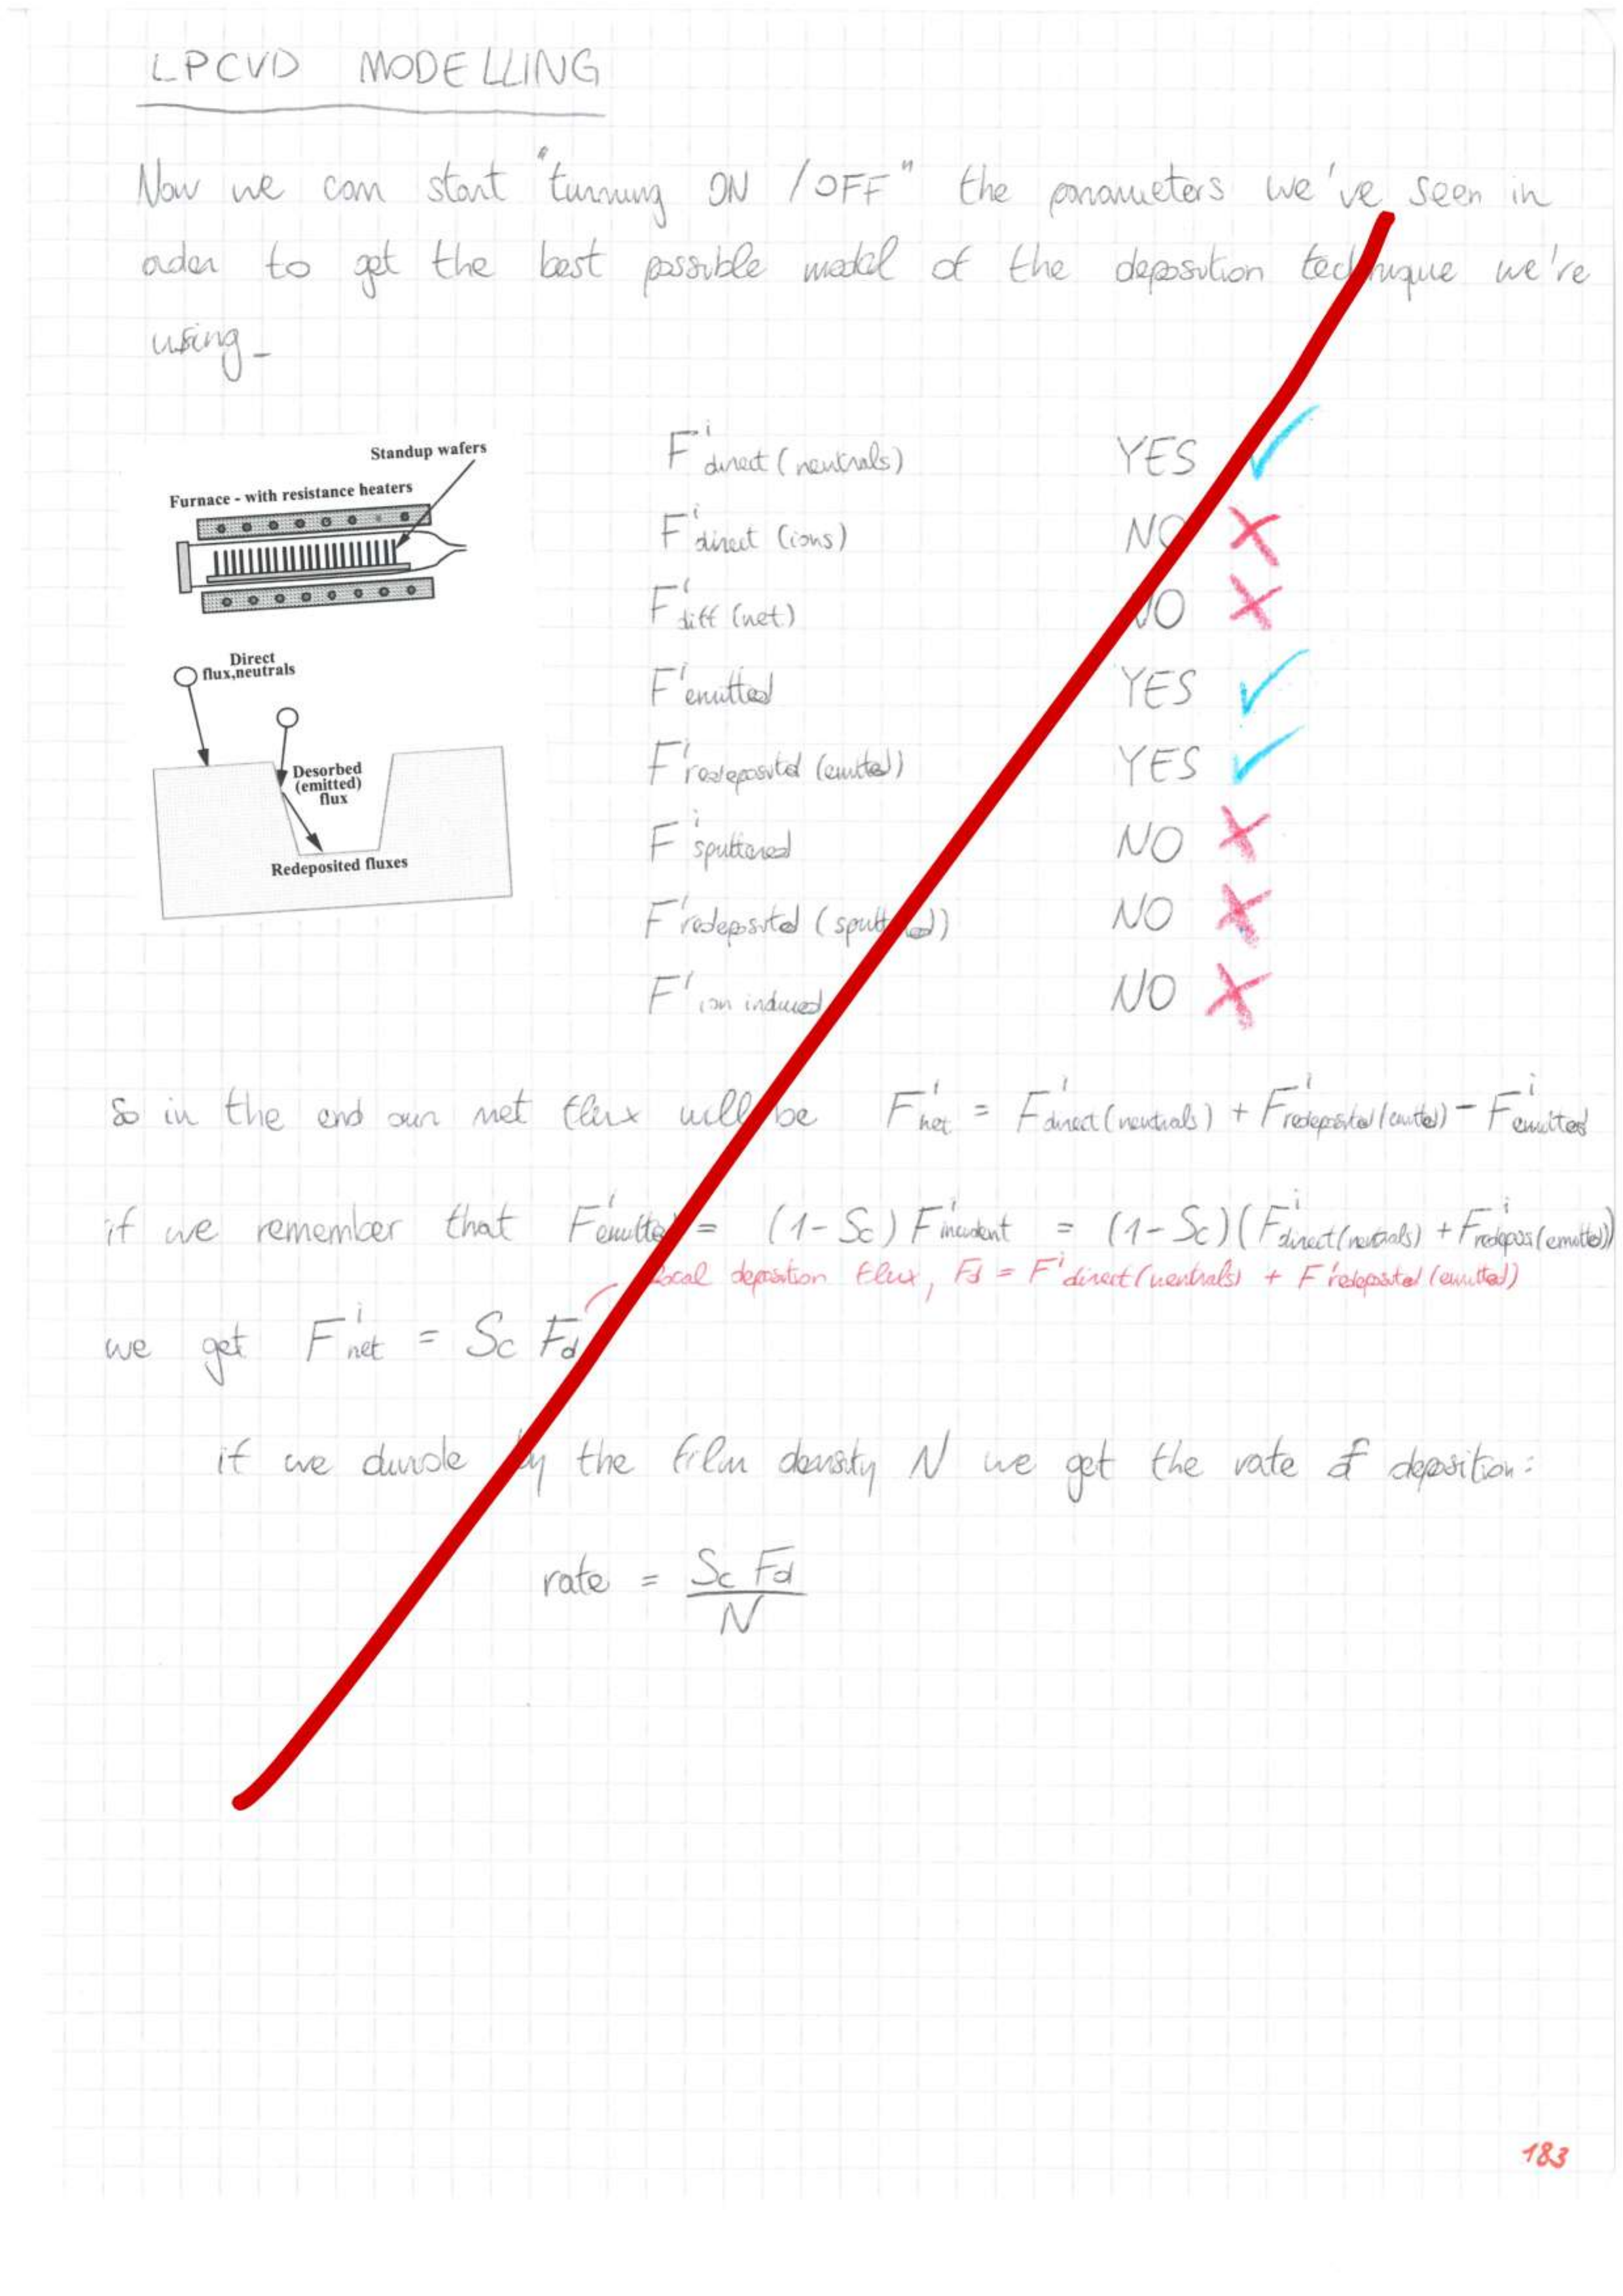 LPCVD MODELLING
Now we can start "turning ON / OFF" the parameters we've seen in
order to get the best possible model of the deposition technique we're
using-
Standup wafers
Furnace - with resistance heaters
Direct
flux,neutrals
Desorbed
(emitted)
flux
Redeposited fluxes
F^i direct (neutrals) YES ✓
F^i direct (ions) NO ✗
F^i diff (net) NO ✗
F^i emitted YES ✓
F^i redeposited (emitted) YES ✓
F^i sputtered NO ✗
F^i redeposited (sputtered) NO ✗
F^i ion induced NO ✗
So in the end our net flux will be F^i net = F^i direct (neutrals) + F^i redeposited (emitted) - F^i emitted
if we remember that F^i emitted = (1-Sc) F^i incident = (1-Sc) (F^i direct (neutrals) + F^i redepos (emitted))
local deposition flux, Fd = F^i direct (neutrals) + F^i redeposited (emitted)
we get F^i net = Sc Fd
if we divide by the film density N we get the rate of deposition:
rate = Sc Fd / N
183